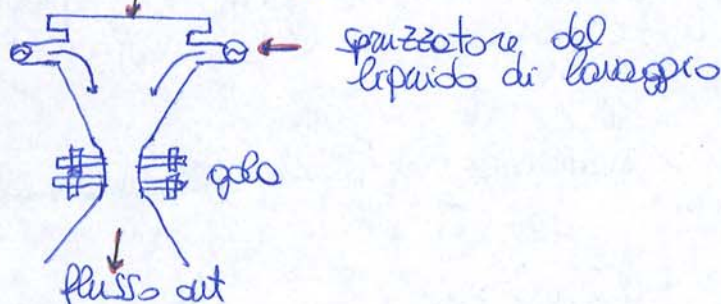 spruzzatore del
liquido di lavaggio
gola
flusso out